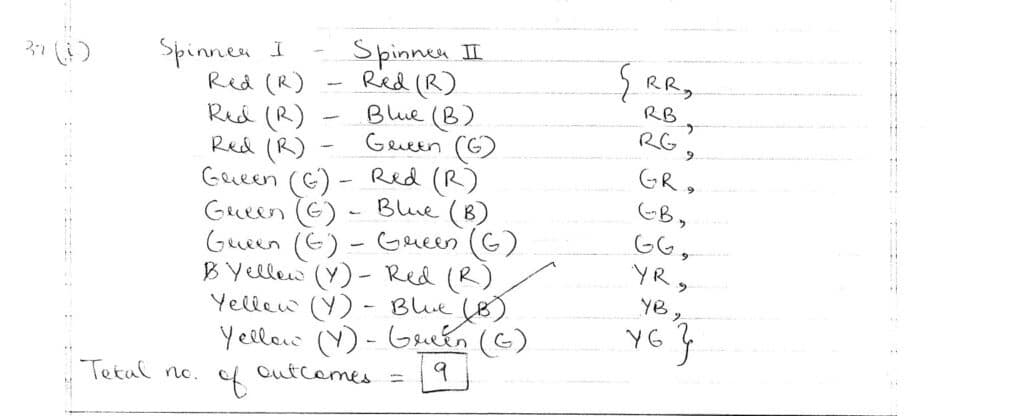 37 (i) Spinner I - Spinner II
Red (R) - Red (R) { RR,
Red (R) - Blue (B) RB,
Red (R) - Green (G) RG,
Green (G) - Red (R) GR,
Green (G) - Blue (B) GB,
Green (G) - Green (G) GG,
B Yellow (Y) - Red (R) YR,
Yellow (Y) - Blue (B) YB,
Yellow (Y) - Green (G) YG }
Total no. of outcomes = 9